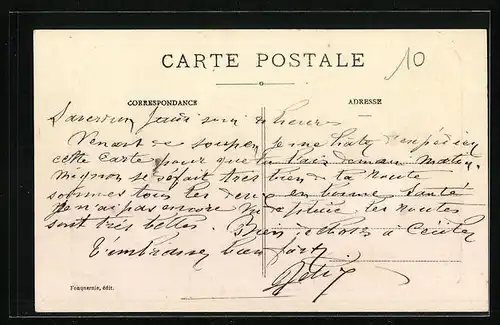 CARTE POSTALE
10
CORRESPONDANCE
ADRESSE
Saverdun Jeudi soir heures
Venant de souper je me hate d'expédier
cette carte pour que tu l'ais demain matin.
Mignon se refait très bien de la route
sommes tous les deux en bonne santé
Je n'ai pas encore vu de pluie, les routes
sont très belles. Bien choses à
T'embrasse bien fort
Félix
Fouquernie, édit.